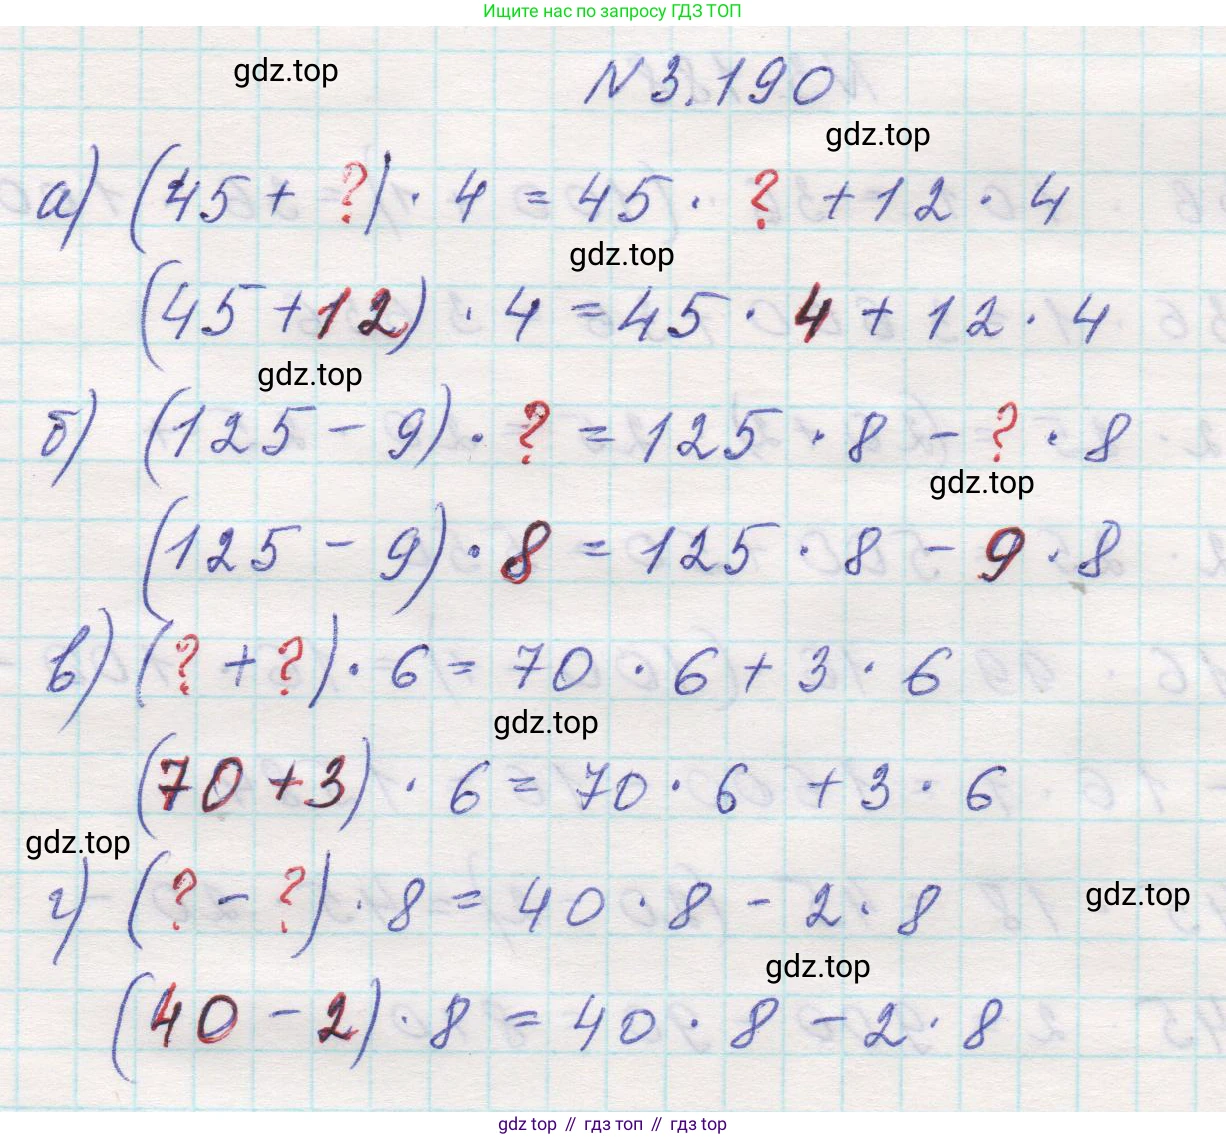 Ищите нас по запросу ГДЗ ТОП
gdz.top
N 3.190
gdz.top
а) (45 + ?) · 4 = 45 · ? + 12 · 4
gdz.top
(45 + 12) · 4 = 45 · 4 + 12 · 4
gdz.top
б) (125 - 9) · ? = 125 · 8 - ? · 8
gdz.top
(125 - 9) · 8 = 125 · 8 - 9 · 8
в) (? + ?) · 6 = 70 · 6 + 3 · 6
gdz.top
(70 + 3) · 6 = 70 · 6 + 3 · 6
gdz.top
г) (? - ?) · 8 = 40 · 8 - 2 · 8
gdz.top
gdz.top
(40 - 2) · 8 = 40 · 8 - 2 · 8
gdz top // гдз топ // gdz top